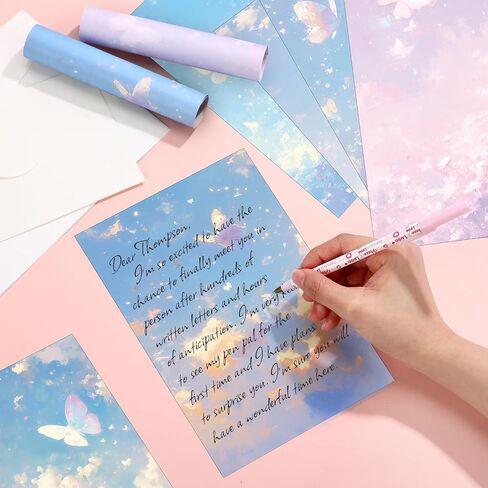 Dear Thompson,
I'm so excited to have the
chance to finally meet you in
person after hundreds of
written letters and hours
of anticipation. I'm very
to see my pen pal for the
first time and I have plans
to surprise you. I'm sure you will
have a wonderful time here.